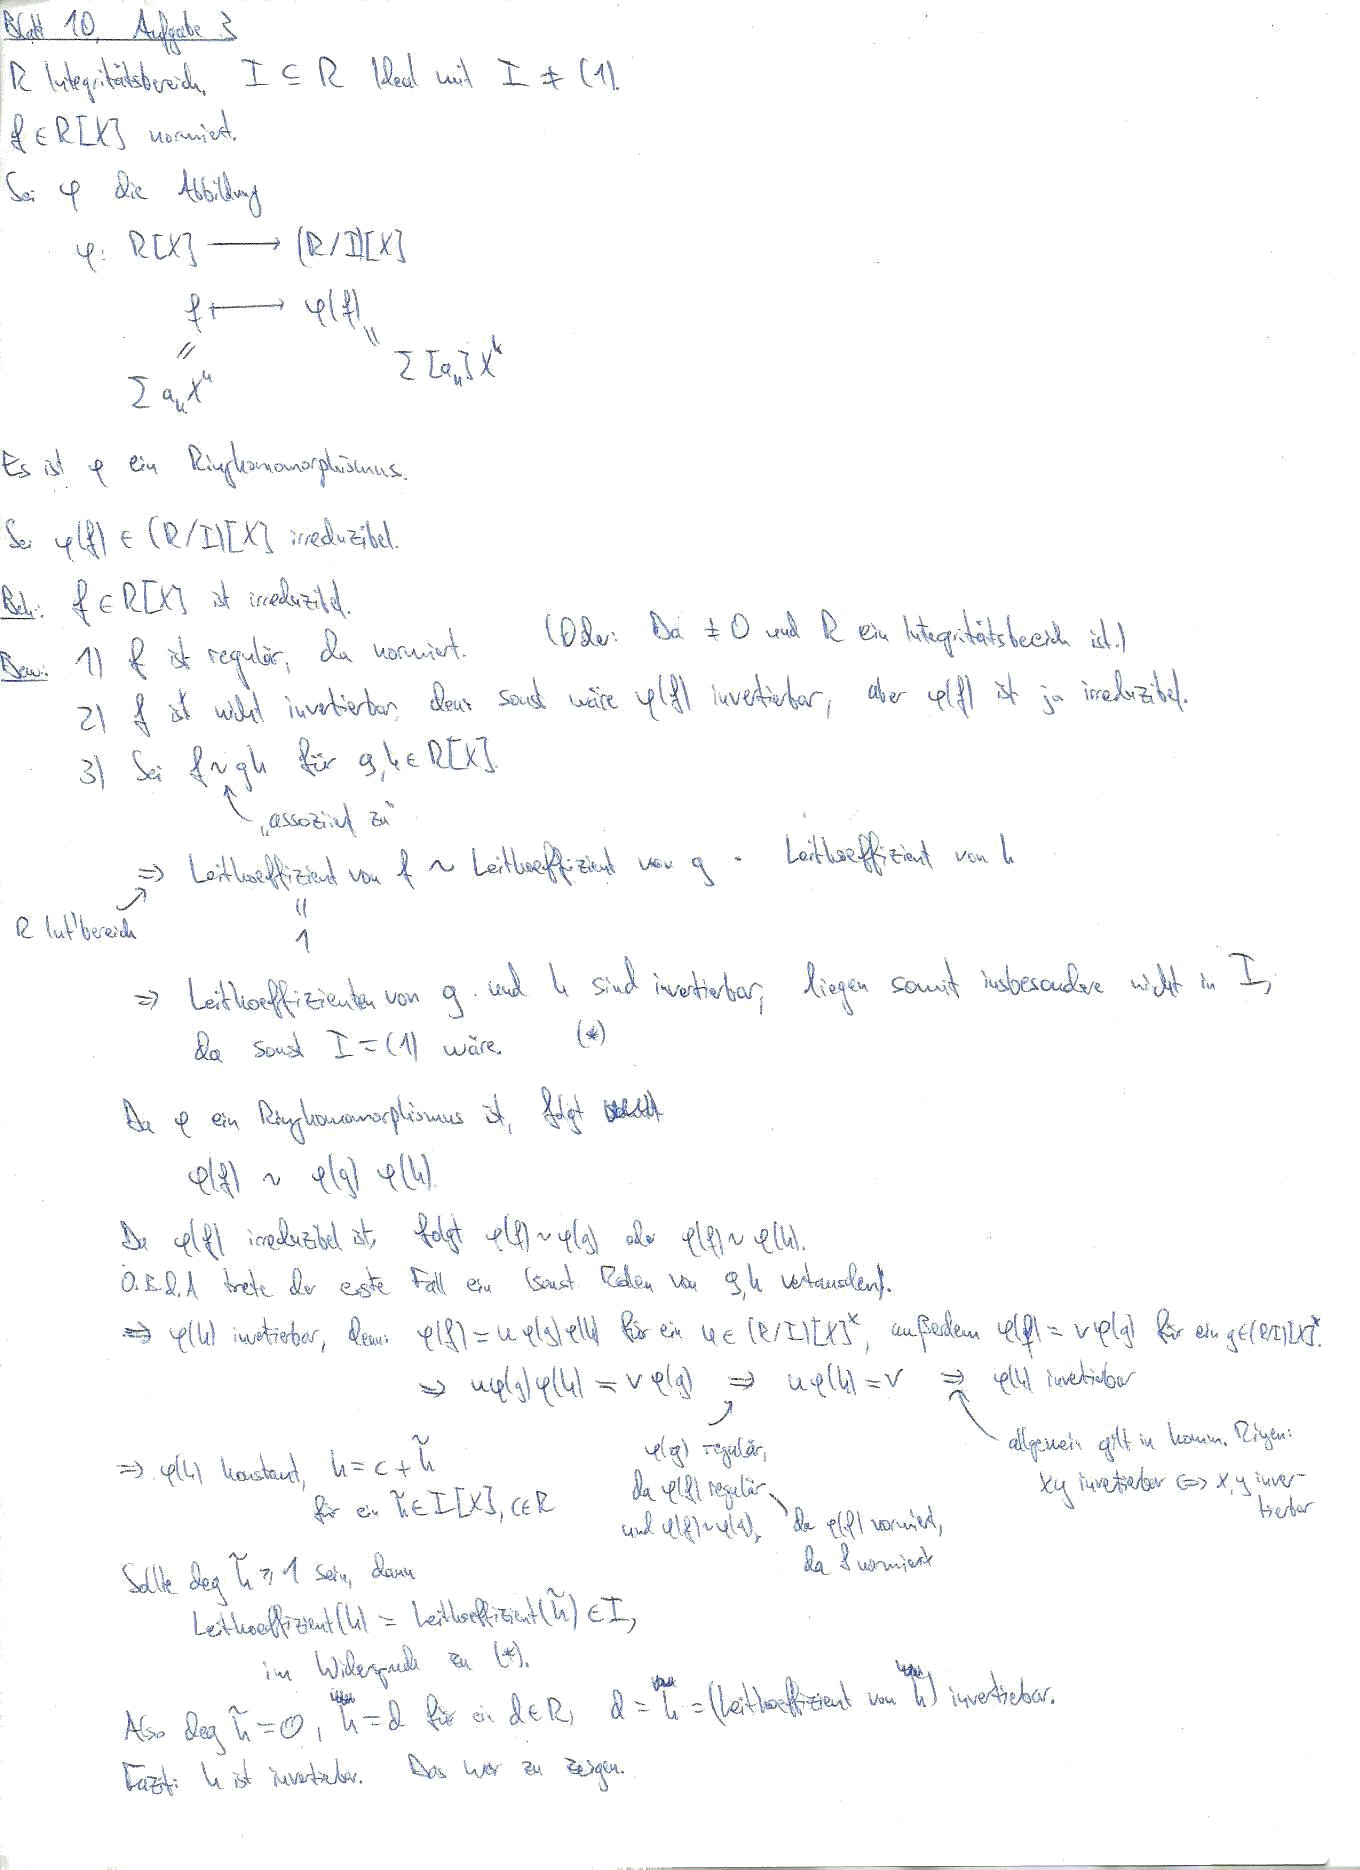 Blatt 10, Aufgabe 3
R Integritätsbereich, I ⊆ R Ideal mit I ≠ (1).
f ∈ R[X] normiert.
Sei φ die Abbildung
φ: R[X] ⟶ (R/I)[X]
f ⟼ φ(f)
= =
∑ [aₙ] Xⁿ
∑ aₙXⁿ
Es ist φ ein Ringhomomorphismus.
Sei φ(f) ∈ (R/I)[X] irreduzibel.
Beh.: f ∈ R[X] ist irreduzibel.
Bew.: 1) f ist regulär, da normiert. (Oder: Da ≠ 0 und R ein Integritätsbereich ist.)
2) f ist nicht invertierbar, denn sonst wäre φ(f) invertierbar, aber φ(f) ist ja irreduzibel.
3) Sei f ~ gh für g, h ∈ R[X].
"assoziiert zu"
⇒ Leitkoeffizient von f ~ Leitkoeffizient von g · Leitkoeffizient von h
R Int'bereich
=
1
⇒ Leitkoeffizienten von g und h sind invertierbar, liegen somit insbesondere nicht in I,
da sonst I = (1) wäre. (*)
Da φ ein Ringhomomorphismus ist, folgt
φ(f) ~ φ(g) φ(h).
Da φ(f) irreduzibel ist, folgt φ(f) ~ φ(g) oder φ(f) ~ φ(h).
O.B.d.A trete der erste Fall ein (sonst Rollen von g, h vertauschen).
⇒ φ(h) invertierbar, denn: φ(f) = u φ(g) φ(h) für ein u ∈ (R/I)[X]ˣ, außerdem φ(f) = v φ(g) für ein g ∈ (R/I)[X]ˣ.
⇒ u φ(g) φ(h) = v φ(g) ⇒ u φ(h) = v ⇒ φ(h) invertierbar
φ(g) regulär,
da φ(f) regulär
und φ(f) ~ φ(g).
da φ(f) normiert,
da f normiert
allgemein gilt in komm. Ringen:
xy invertierbar ⇔ x, y inver-
tierbar
⇒ φ(h) konstant, h = c + h̃
für ein h̃ ∈ I[X], c ∈ R
Sollte deg h̃ ≥ 1 sein, dann
Leitkoeffizient(h) = Leitkoeffizient(h̃) ∈ I,
im Widerspruch zu (*).
Also deg h̃ = 0, h = d für ein d ∈ R, d = h = (Leitkoeffizient von h) invertierbar.
Fazit: h ist invertierbar. Das war zu zeigen.